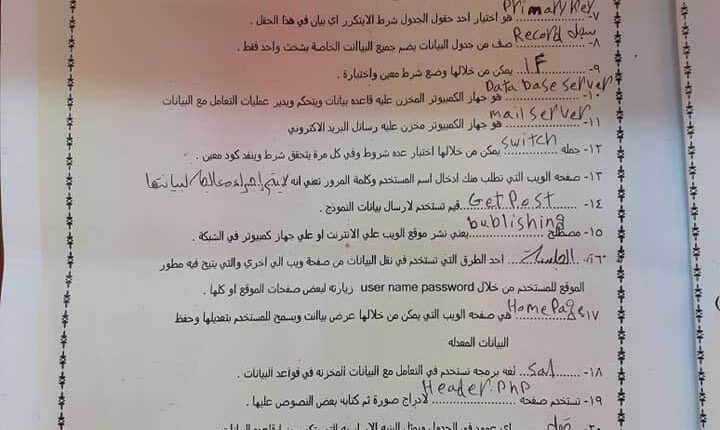 Primary key
٧- .............. هو اختيار احد حقول الجدول شرط الايتكرر اي بيان في هذا الحقل .
سجل Record
٨- .............. صف من جدول البيانات يضم جميع البياانت الخاصة بشخث واحد فقط .
٩- ......IF...... يمكن من خلالها وضع شرط معين واختبارة .
Data base server
١٠- .............. هو جهاز الكمبيوتر المخزن عليه قاعده بيانات ويتحكم ويدير عمليات التعامل مع البيانات
mail server
١١- .............. هو جهاز الكمبيوتر مخزن عليه رسائل البريد الاكتروني
١٢- جمله ...switch... يمكن من خلالها اختبار عده شروط وفي كل مرة يتحقق شرط وينفد كود معين .
١٣- صفحه الويب التي تطلب منك ادخال اسم المستخدم وكلمة المرور تعني انه لا يتم إجراء معالجة لبياناتها
١٤- ...Get Post... قيم تستخدم لارسال بيانات النموذج .
bublishing
١٥- مصطلح .............. يعني نشر موقع الويب علي الانترنت او علي جهاز كمبيوتر في الشبكة .
١٦- ...الجلسات... احد الطرق التي تستخدم في نقل البيانات من صفحة ويب الي اخري والتي يتيح فيه مطور
الموقع للمستخدم من خلال user name password زيارته لبعض صفحات الموقع او كلها .
١٧- Home Page هي صفحه الويب التي يمكن من خلالها عرض بياانت ويسمح للمستخدم بتعديلها وحفظ
البيانات المعدله
١٨- ...sql... لغه برمجه تستخدم في التعامل مع البيانات المخزنه في قواعد البيانات .
Header.php
١٩- تستخدم صفحه .............. لادراج صورة ثم كتابه بعض النصوص عليها .